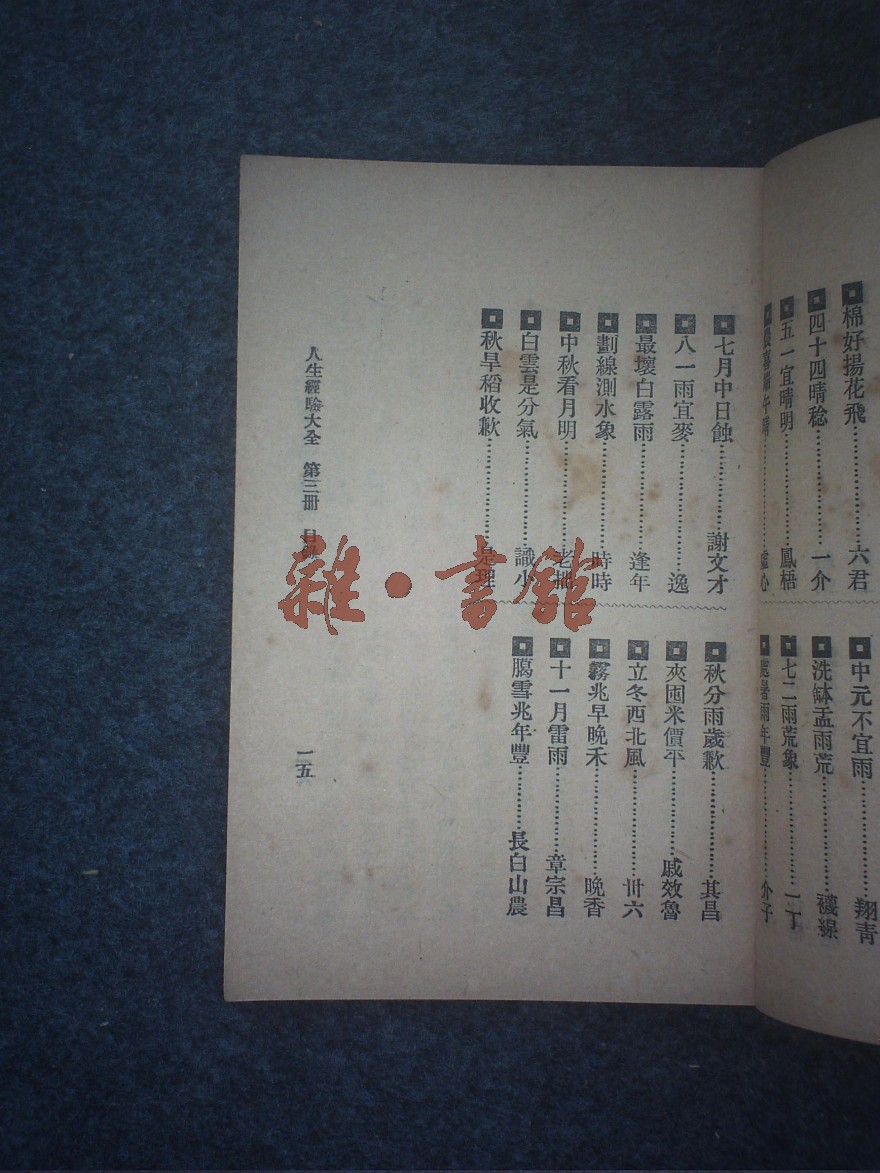 棉好揚花飛⋯⋯六君
四十四晴稔⋯⋯一介
五一宜晴明⋯⋯鳳梧
虛心
中元不宜雨⋯⋯翔青
洗缽盂雨荒⋯⋯襪線
七二雨荒象⋯⋯一丁
處暑雨年豐⋯⋯介子
七月中日蝕⋯⋯謝文才
八一雨宜麥⋯⋯逸
最壞白露雨⋯⋯逢年
劃線測水象⋯⋯時時
中秋看月明⋯⋯老
白雲是分氣⋯⋯識小
秋旱稻收歉⋯⋯是理
秋分雨歲歉⋯⋯其昌
夾囤米價平⋯⋯戚效魯
立冬西北風⋯⋯卅六
霧兆早晚禾⋯⋯晚香
十一月雷雨⋯⋯章宗昌
臈雪兆年豐⋯⋯長白山農
人生經驗大全 第三冊 目錄
一五
雜·書館